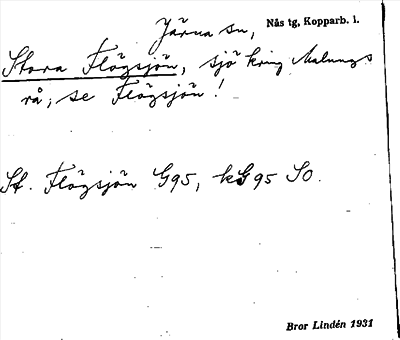 Järna sn, Nås tg, Kopparb. l.
Stora Flögsjön, sjö kring Malungs
rå; se Flögsjön!
St. Flögsjön G95, kG95 SO.
Bror Lindén 1931